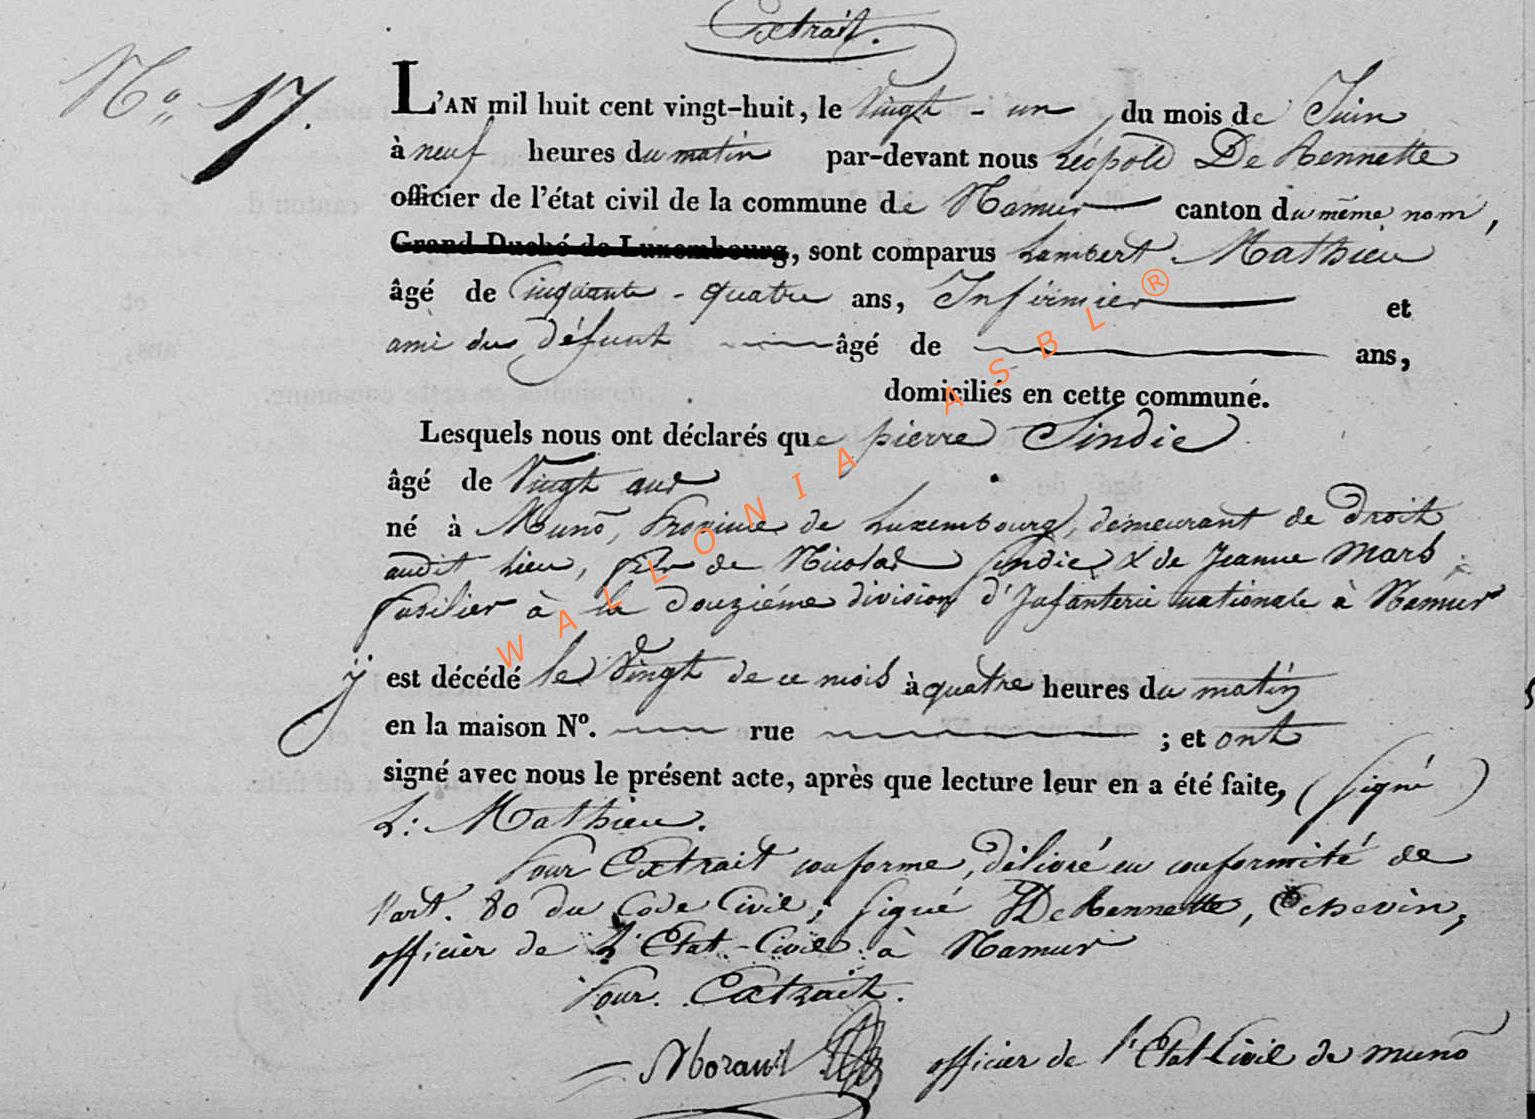 Extrait.
N° 17.
L'AN mil huit cent vingt-huit, le Vingt-un du mois de Juin
à neuf heures du matin par-devant nous Léopold De Hennette
officier de l'état civil de la commune de Namur canton du même nom,
Grand-Duché de Luxembourg, sont comparus Lambert Mathieu
âgé de Cinquante-quatre ans, Infirmier et
ami du Défunt âgé de ans,
domiciliés en cette commune.
Lesquels nous ont déclarés que pierre Sindic
âgé de Vingt ans
né à Muno, Province de Luxembourg, demeurant de droit
audit Lieu, fils de Nicolas Sindic & de Jeanne Mars
fusilier à la douzième division d'Infanterie nationale à Namur
y est décédé le Vingt de ce mois à quatre heures du matin
en la maison N°. rue ; et ont
signé avec nous le présent acte, après que lecture leur en a été faite, (signé)
L: Mathieu.
Pour Extrait conforme, délivré en conformité de
l'art. 80 du Code Civil; signé De Hennette, Echevin,
officier de L'Etat-Civil à Namur
Pour Extrait.
officier de l'Etat-Civil de muno
WALLONIA ASBL ®